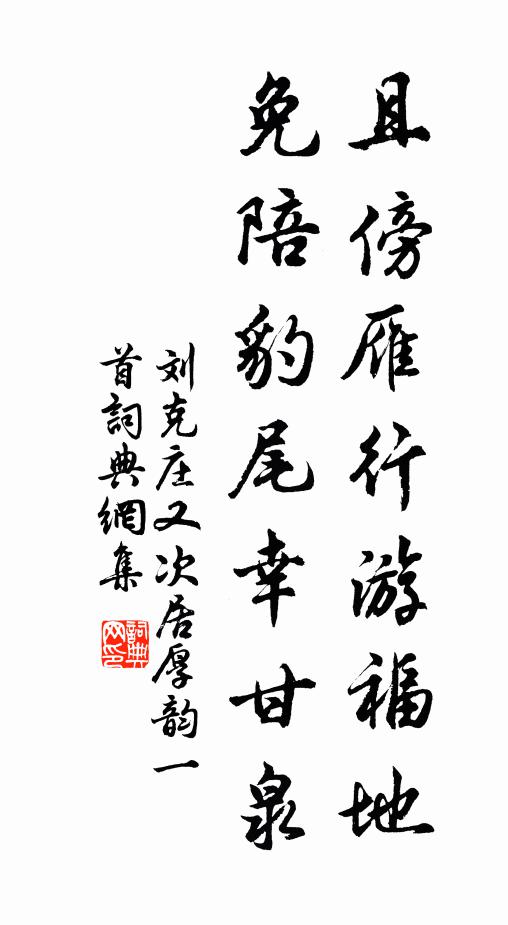 且傍雁行游福地
免陪豹尾幸甘泉
刘克庄又次居厚韵一
首詞典網集
詞典网印